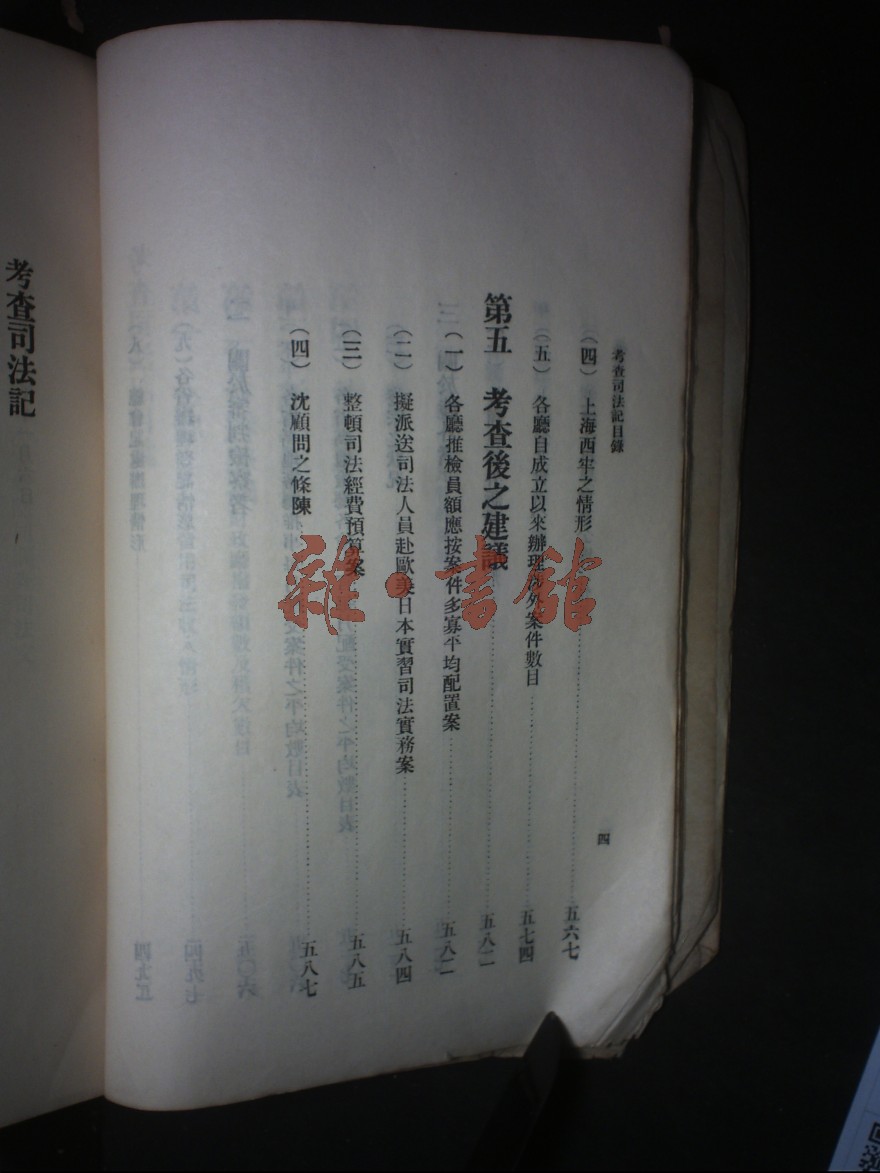 考查司法記目錄
四
(四) 上海西牢之情形 五六七
(五) 各廳自成立以來辦理涉外案件數目 五七四
第五 考查後之建議 五八二
(一) 各廳推檢員額應按案件多寡平均配置案 五八二
(二) 擬派送司法人員赴歐美日本實習司法實務案 五八四
(三) 整頓司法經費預算案 五八五
(四) 沈顧問之條陳 五八七
考查司法記
雜·書館